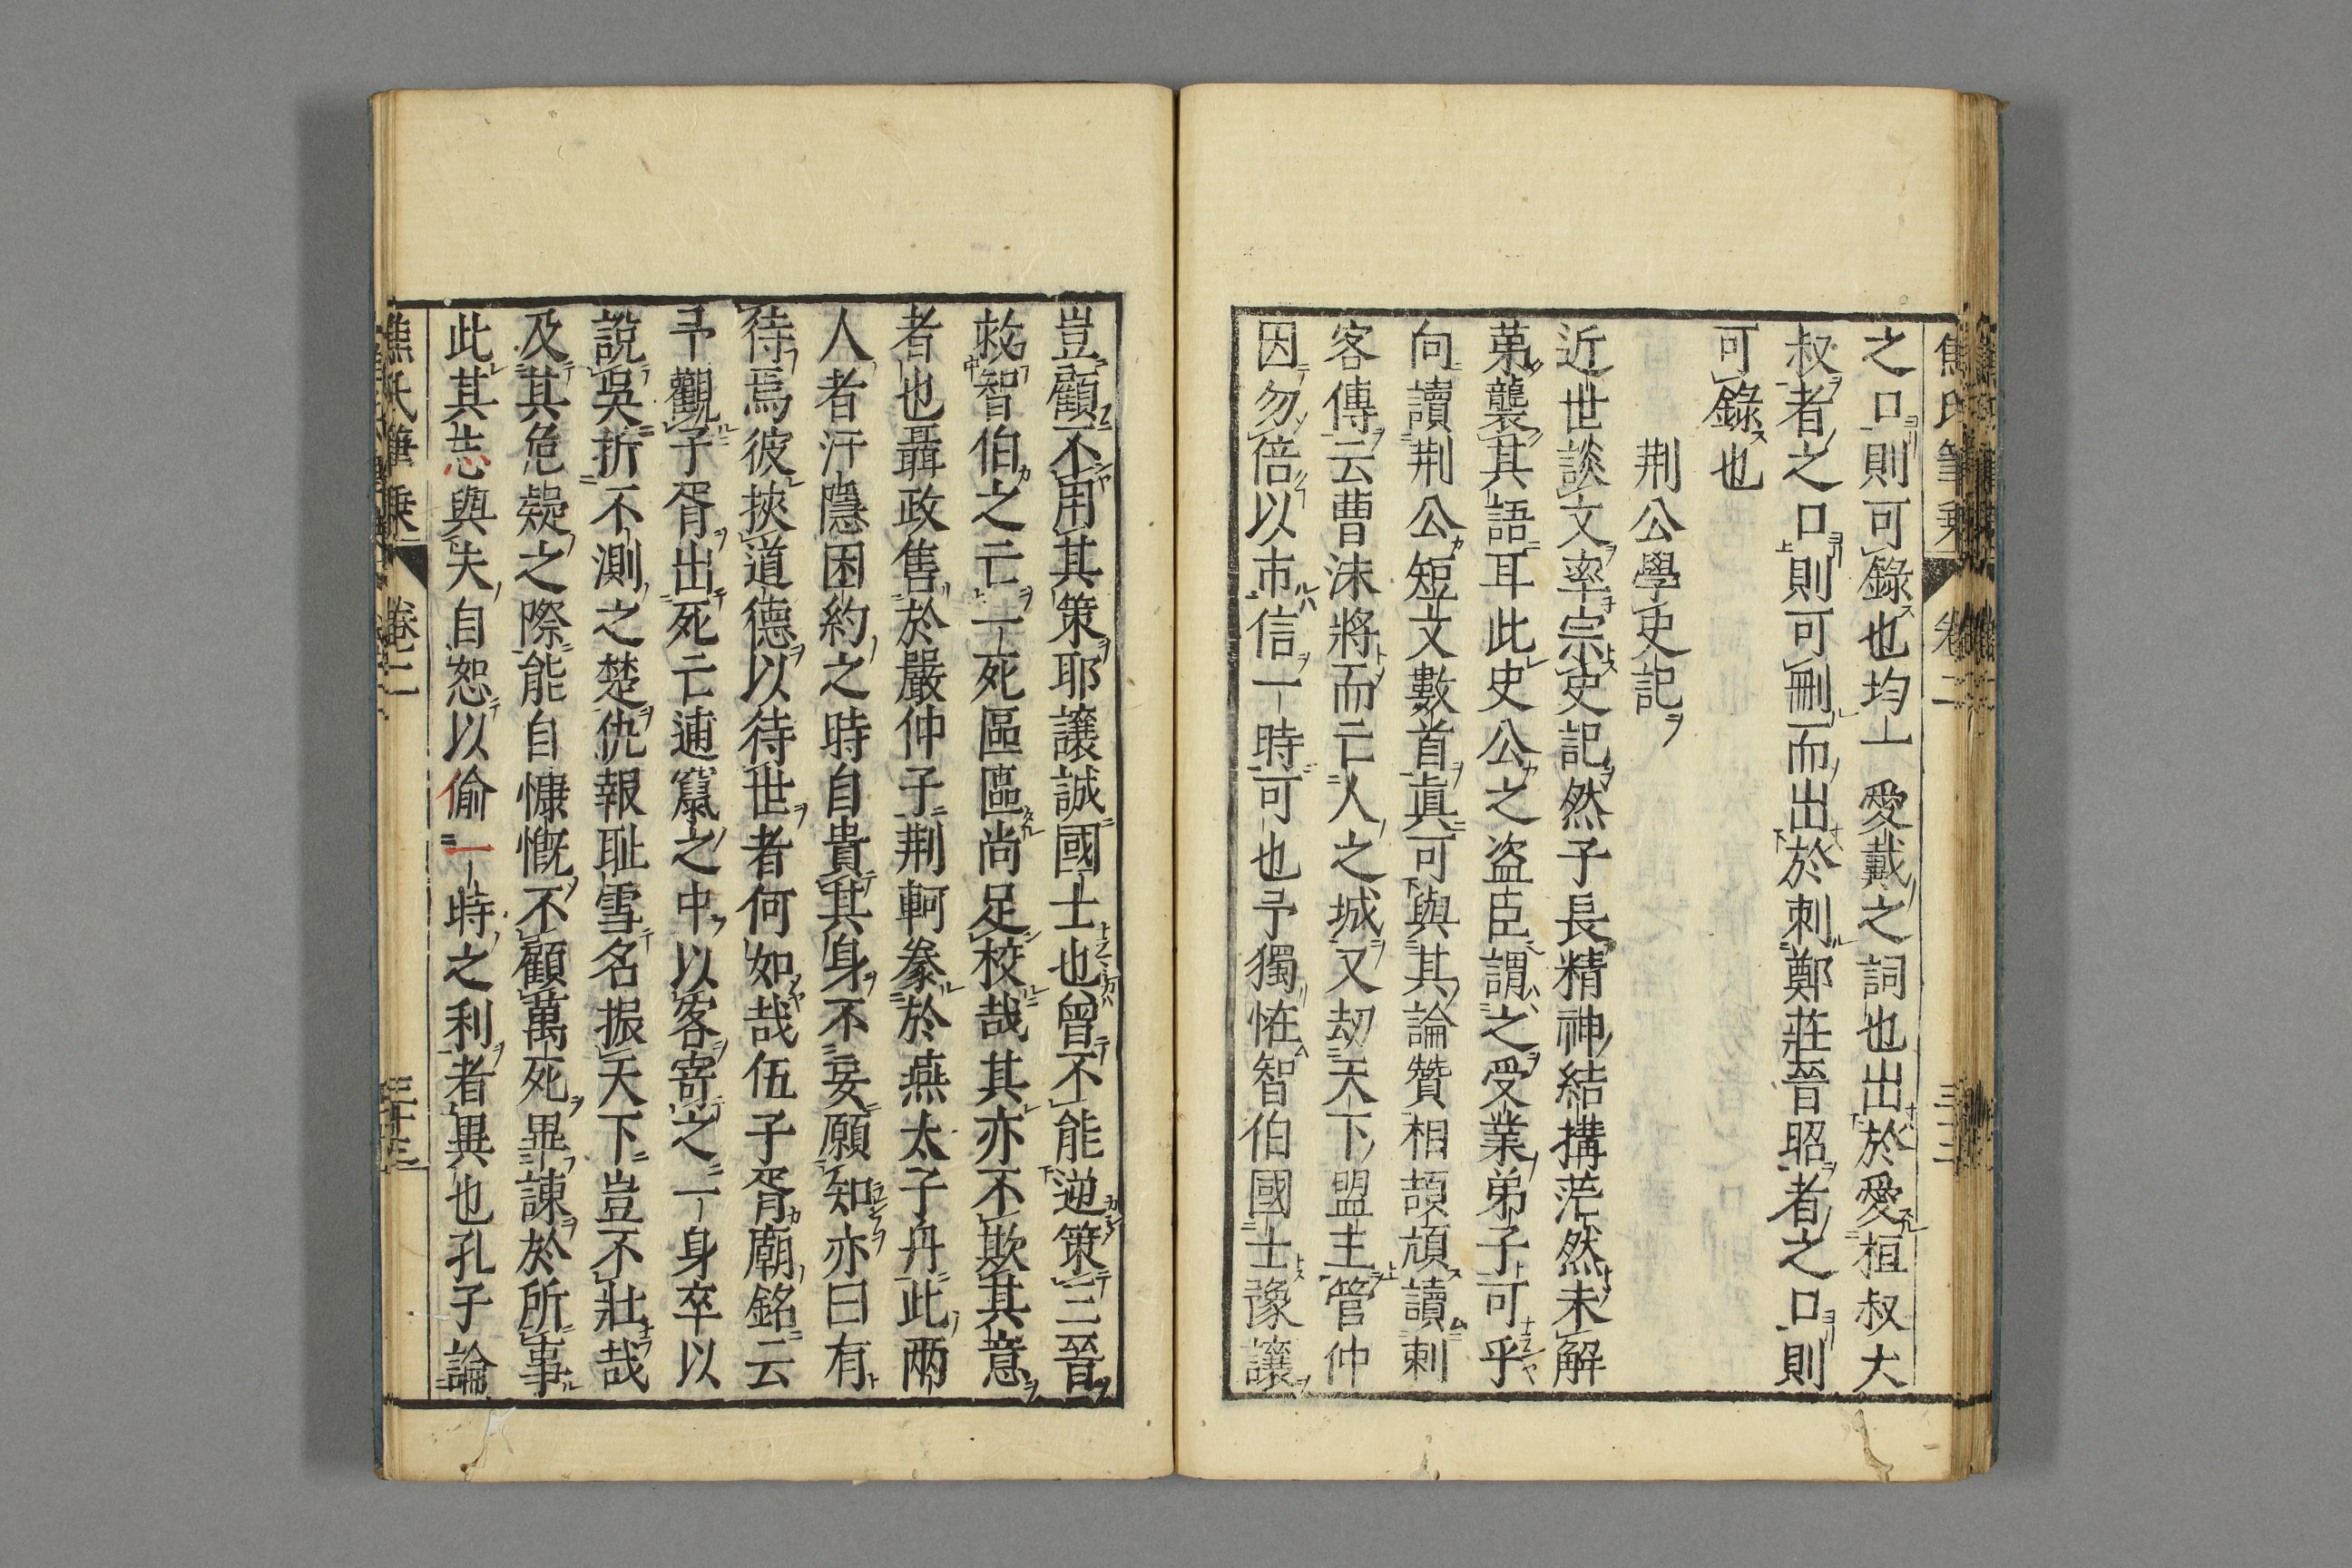 之口則可錄也均一愛戴之詞也出於愛桓叔大
叔者之口則可刪而出於刺鄭莊晉昭者之口則
可錄也
荆公學史記
近世談文率宗史記然子長精神結搆茫然未解
苐襲其語耳此史公之盗臣謂之受業弟子可乎
向讀荆公短文數首真可與其論贊相頡頏讀刺
客傳云曹沬將而亡人之城又刼天下盟主管仲
因勿倍以市信一時可也予獨恠智伯國士豫讓
豈顧不用其策耶讓誠國士也曾不能逆策三晉
救智伯之亡一死區區尚足校哉其亦不欺其意
者也聶政售於嚴仲子荆軻豢於燕太子丹此兩
人者汙隱困約之時自貴其身不妄願知亦曰有
待焉彼挾道德以待世者何如哉伍子胥廟銘云
予觀子胥出死亡逋竄之中以客寄之一身卒以
說吳折不測之楚仇報耻雪名振天下豈不壯哉
及其危疑之際能自慷慨不顧萬死畢諫於所事
此其志與失自恕以偷一時之利者異也孔子論
焦氏筆乗 卷二 三十三